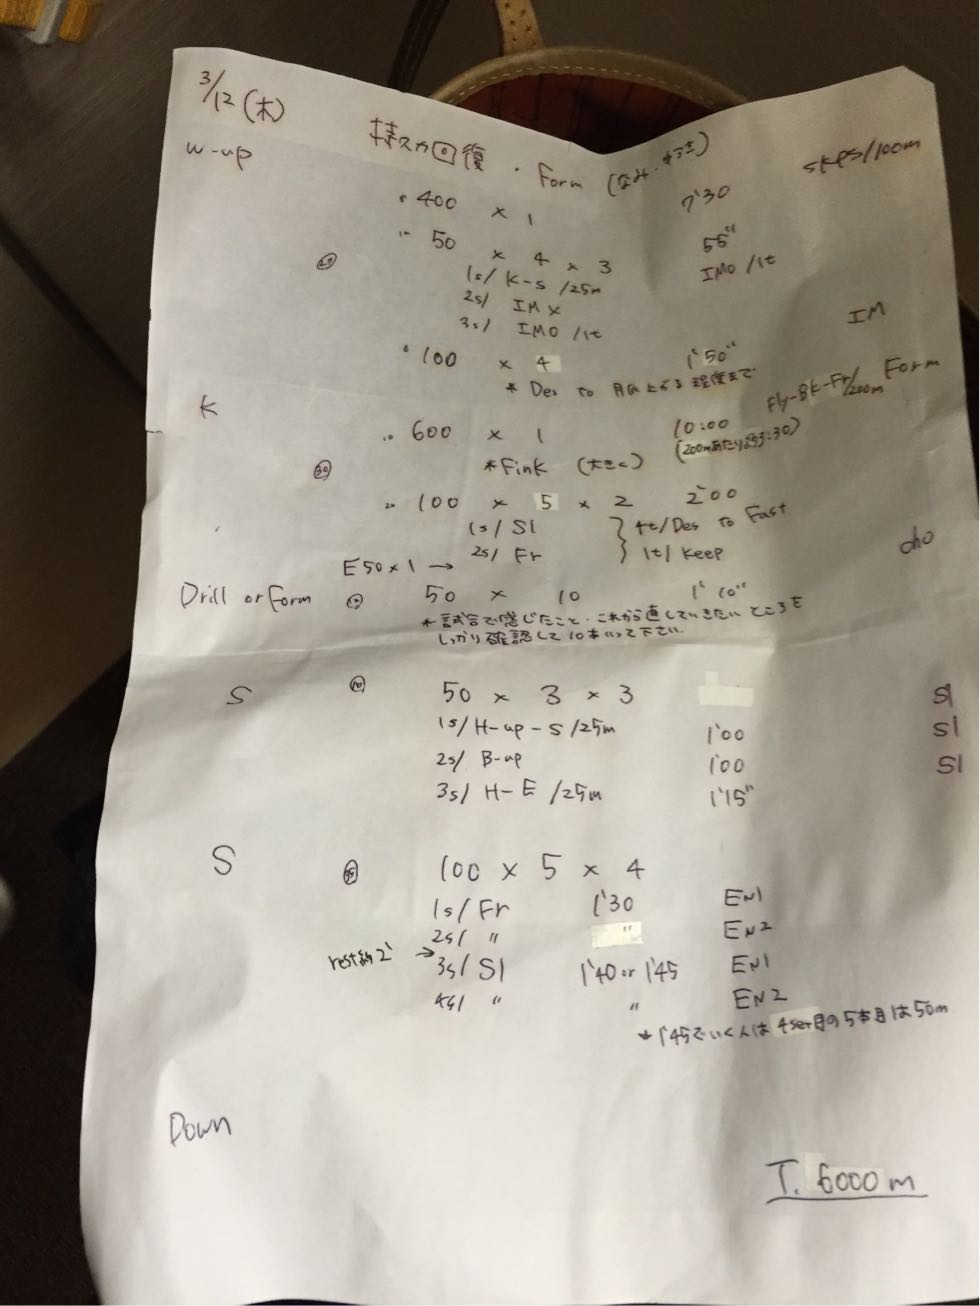 3/12 (木)
持久力回復 ・ Form (なみ・
W-up SKPS/100m
400 × 1 7'30
50 × 4 × 3 55"
1s/ K-S /25m IMO /1t
2s/ IM X
3s/ IMO /1t
IM
100 × 4 1'50"
* Des to 息が上がる程度まで
K Fly-BK-Fr/200m Form
600 × 1 10:00
*Fink (大きく) (200mあたり約3:30)
30
100 × 5 × 2 2'00
1s/ S1 } 4t/Des to Fast
2s/ Fr } 1t/ Keep
cho
E50×1 →
Drill or Form 50 × 10 1'10"
* 試合で感じたこと・これから直していきたいところを
しっかり確認して10本いって下さい
S 10 50 × 3 × 3 S1
1s/ H-up-S /25m 1'00 S1
2s/ B-up 1'00 S1
3s/ H-E /25m 1'15"
S 35 100 × 5 × 4
1s/ Fr 1'30 EN1
2s/ " " EN2
rest約2' → 3s/ S1 1'40 or 1'45 EN1
4s/ " " EN2
* 1'45でいく人は 4set目の5本目は50m
Down
T. 6000m